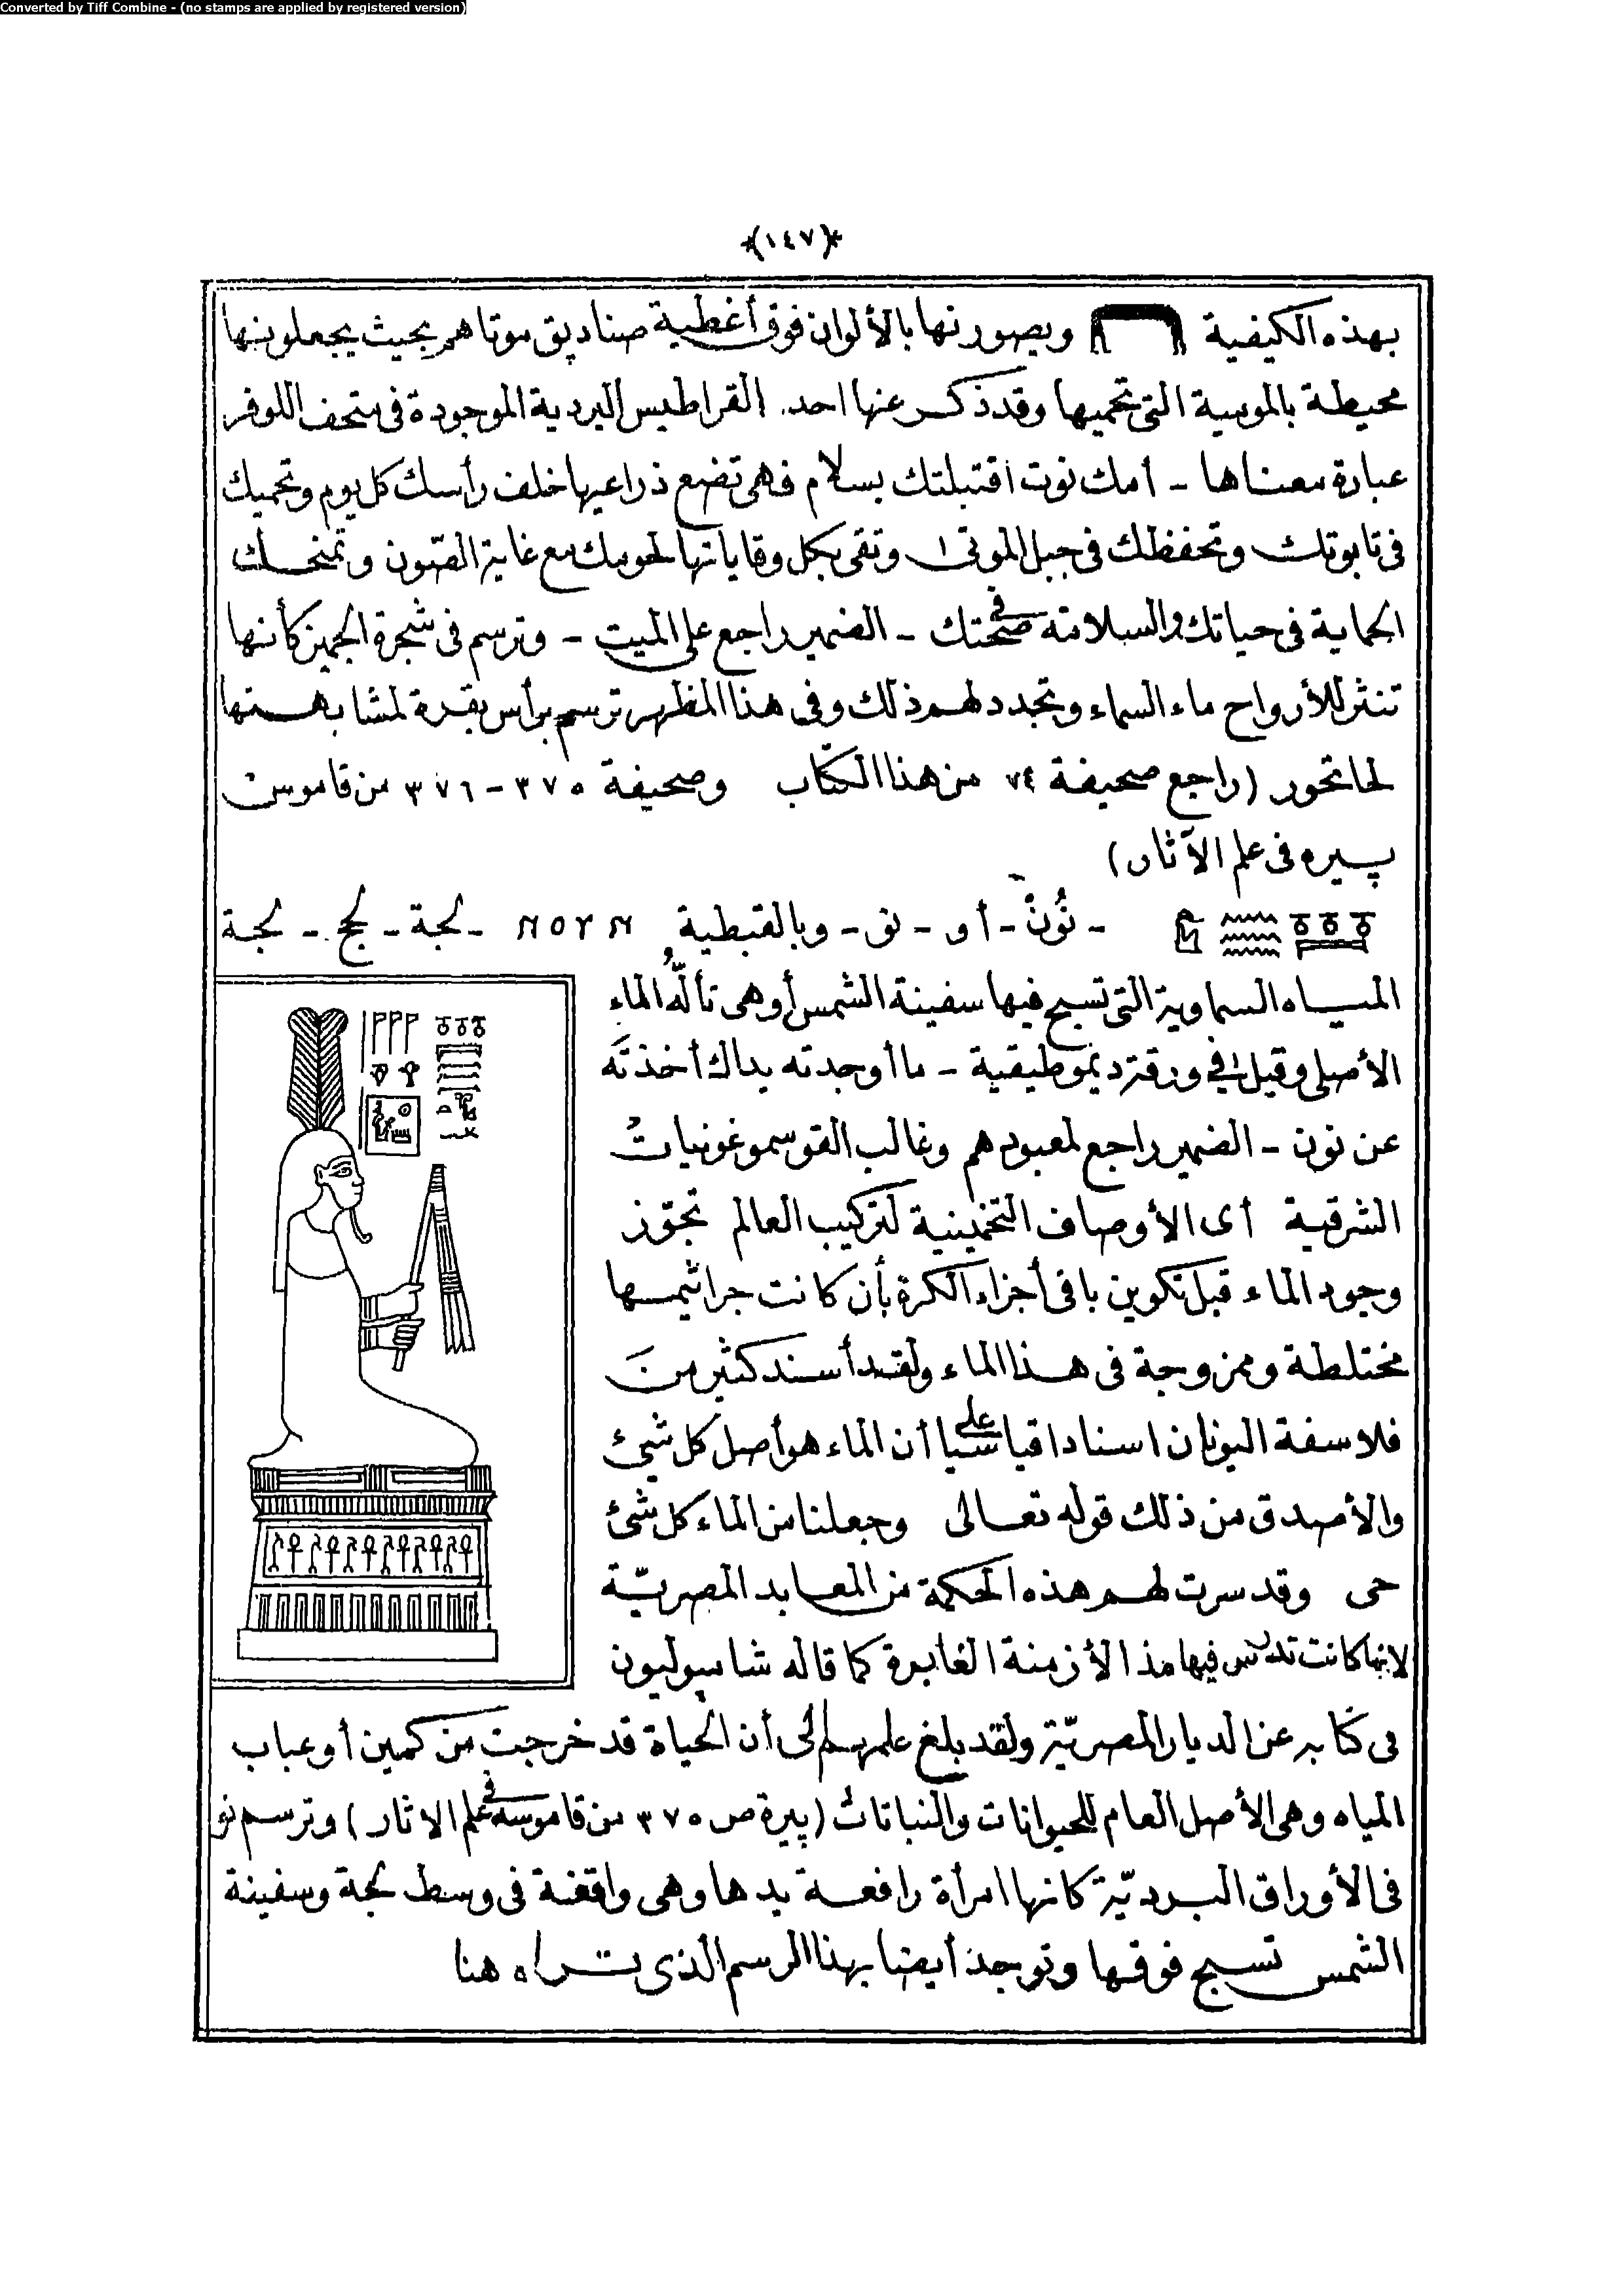 Converted by Tiff Combine - (no stamps are applied by registered version)
﴿١٤٧﴾
بهذه الكيفية ويصورنها بالألوان فوق أغطية صناديق موتاهم بحيث يجعلونها
محيطة بالموسية التى تحميها وقد ذكر عنها احد القراطيس البردية الموجودة فى متحف اللوفر
عبارة معناها - أمك نوت اقتبلتك بسلام فهى تضع ذراعيها خلف رأسك كل يوم وتحميك
فى تابوتك وتحفظك فى جبل الموتى وتقى بكل وقاياتها لحومك مع غاية الصون وتمنحك
الحماية فى حياتك والسلامة فى صحتك - الضمير راجع على الميت - وترسم فى شجرة الجميز كأنها
تنثر للأرواح ماء السماء وتجدد لهم ذلك وفى هذا المظهر ترسم برأس بقرة لمشابهتها
لحاتحور (راجع صحيفة ٧٤ من هذا الكتاب وصحيفة ٣٧٥-٣٧٦ من قاموس
پيره فى علم الآثار)
- نُونْ - أو - نق - وبالقبطية ⲛⲟⲩⲛ - لجة - لج - لجة
المياه السماوية التى تسبح فيها سفينة الشمس أو هى تألُّه الماء
الأصلى وقيل فى ورقة ديموطيقية - ما أوجدته يداك أخذته
عن نون - الضمير راجع لمعبودهم وغالب القوسموغونيات
الشرقية أى الأوصاف التخمينية لتركيب العالم تجوّز
وجود الماء قبل تكوين باقى أجزاء الكرة بأن كانت جراثيمها
مختلطة وممزوجة فى هذا الماء ولقد أسند كثير من
فلاسفة اليونان اسنادا قياسيا على أن الماء هو أصل كل شيئ
والأصدق من ذلك قوله تعالى وجعلنا من الماء كل شئ
حى وقد سرت لهم هذه الحكمة من المعابد المصريّة
لانها كانت تدرس فيها مذ الأزمنة الغابرة كما قاله شامپوليون
فى كتابه عن الديار المصريّة ولقد بلغ علمهم إلى أن الحياة قد خرجت من كمين أو عباب
المياه وهى الأصل العام للحيوانات والنباتات (پيرة ص ٣٧٥ من قاموسه فى علم الاثار) وترسم نو
فى الأوراق البرديّة كانها امرأة رافعة يدها وهى واقفة فى وسط لجة وسفينة
الشمس تسبح فوقها وتوجد أيضا بهذا الرسم الذى تراه هنا